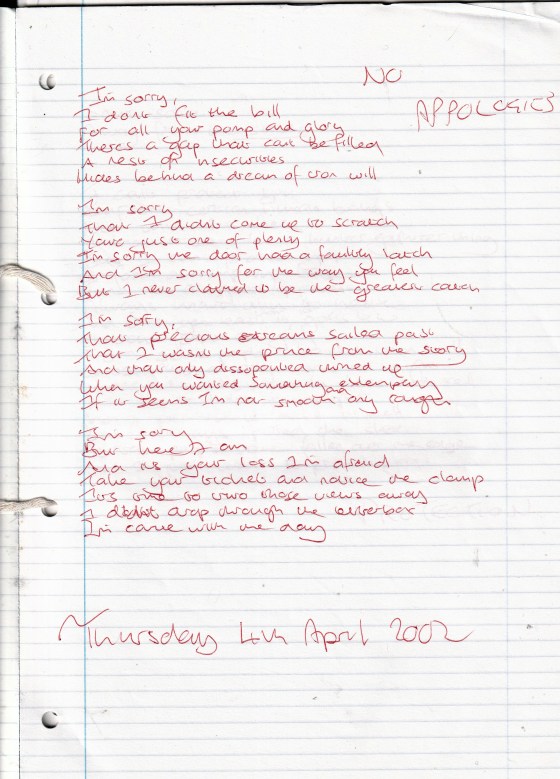 NO
APPOLOGIES
I'm sorry,
I dont fit the bill
For all your pomp and glory
Theres a gap that cant be filled
A nest of insecurities
Hides behind a dream of iron will
I'm sorry
That I didnt come up to scratch
Your just one of plenty
I'm sorry the door had a faulty latch
And I'm sorry for the way you feel
But I never claimed to be the greatest catch
I'm sorry,
That precious dreams sailed past
That I wasnt the prince from the story
And that only dissapointed turned up
When you wanted Something extempary
If it seems I'm not smooth any
I'm sorry
But here I am
And its your loss I'm afraid
Take your tickets and notice the clamp
Its time to those views away
I didnt drop through the letterbox
I'm came with the day
Thursday 4th April 2002